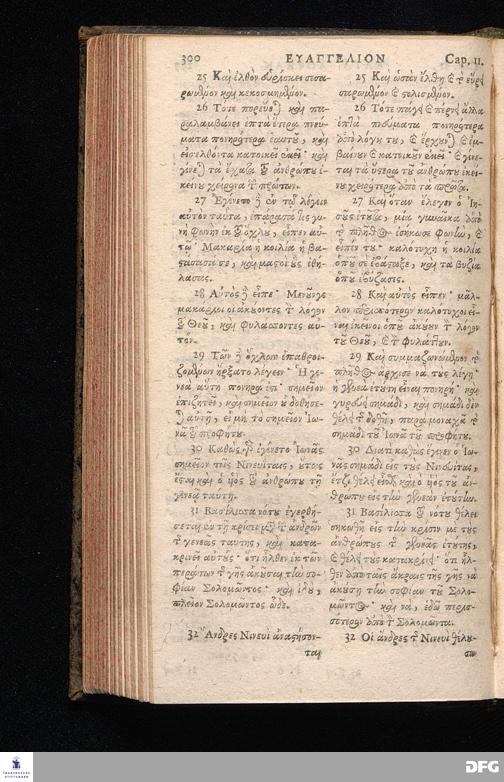 300 ΕΥΑΓΓΕΛΙΟΝ Cap. 11.
25 Καὶ ἐλθὸν εὑρίσκει σεσα-
ρωμένον καὶ κεκοσμημένον.
26 Τότε πορεύεται καὶ πα-
ραλαμβάνει ἑπτὰ ἕτερα πνεύ-
ματα πονηρότερα ἑαυτοῦ, καὶ
εἰσελθόντα κατοικεῖ ἐκεῖ· καὶ
γίνεται τὰ ἔσχατα τοῦ ἀνθρώπου ἐ-
κείνου χείρονα τῶν πρώτων.
27 Ἐγένετο δὲ ἐν τῷ λέγειν
αὐτὸν ταῦτα, ἐπάρασά τις γυ-
νὴ φωνὴν ἐκ τοῦ ὄχλου, εἶπεν αὐ-
τῷ· Μακαρία ἡ κοιλία ἡ βα-
στάσασά σε, καὶ μαστοὶ οὓς ἐθή-
λασας.
28 Αὐτὸς δὲ εἶπε· Μενοῦνγε
μακάριοι οἱ ἀκούοντες τὸν λόγον
τοῦ Θεοῦ, καὶ φυλάσσοντες αὐ-
τόν.
29 Τῶν δὲ ὄχλων ἐπαθροι-
ζομένων ἤρξατο λέγειν· Ἡ γε-
νεὰ αὕτη πονηρά ἐστι· σημεῖον
ἐπιζητεῖ, καὶ σημεῖον οὐ δοθήσε-
ται αὐτῇ, εἰ μὴ τὸ σημεῖον Ἰω-
νᾶ τοῦ προφήτου.
30 Καθὼς γὰρ ἐγένετο Ἰωνᾶς
σημεῖον τοῖς Νινευΐταις, οὕτως
ἔσται καὶ ὁ υἱὸς τοῦ ἀνθρώπου τῇ
γενεᾷ ταύτῃ.
31 Βασίλισσα νότου ἐγερθή-
σεται ἐν τῇ κρίσει μετὰ τῶν ἀνδρῶν
τῆς γενεᾶς ταύτης, καὶ κατα-
κρινεῖ αὐτούς· ὅτι ἦλθεν ἐκ τῶν
περάτων τῆς γῆς ἀκοῦσαι τὴν σο-
φίαν Σολομῶντος· καὶ ἰδοὺ,
πλεῖον Σολομῶντος ὧδε.
32 Ἄνδρες Νινευῒ ἀναστήσον-
ται
25 Καὶ ὡσὰν ἔλθῃ τὸ εὑρῇ
σαρωμένον καὶ στολισμένον.
26 Τότε πάγει καὶ πέρνει ἄλλα
ἑπτὰ πνεύματα πονηρότερα
ἀπὸ λόγου του, καὶ ἔρχουνται καὶ ἐμ-
βαίνουν καὶ κατοικοῦν ἐκεῖ· καὶ γίνε-
ται τὰ ὕστερα τοῦ ἀνθρώπου ἐκεί-
νου χειρότερα ἀπὸ τὰ πρῶτα.
27 Καὶ ὅταν ἔλεγεν ὁ Ἰη-
σοῦς ἐτοῦτα, μία γυναῖκα ἀπὸ
τὸ πλῆθος ἐσήκωσε φωνὴν, καὶ
εἶπέν του· καλότυχη ἡ κοιλία
ὁποῦ σὲ ἐβάσταξε, καὶ τὰ βυζία
ὁποῦ ἐβύζασες.
28 Καὶ αὐτὸς εἶπεν· μᾶλ-
λον περισσότερον καλότυχοι εἶ-
ναι ἐκεῖνοι ὁποῦ ἀκούουν τὸν λόγον
τοῦ Θεοῦ, καὶ τὸν φυλάττουν.
29 Καὶ συμμαζονομένον τὸ
πλῆθος ἄρχισε νὰ τοὺς λέγῃ·
ἡ γενεὰ ἐτούτη εἶναι πονηρὴ· καὶ
γυρεύει σημάδι, καὶ σημάδι δὲν
θέλει τῆς δοθῇ, παρὰ μοναχὰ τὸ
σημάδι τοῦ Ἰωνᾶ τοῦ προφήτου.
30 Διατὶ καθὼς ἔγινεν ὁ Ἰω-
νᾶς σημάδι εἰς τοὺς Νινευίτας,
ἔτζι θέλει εἶσθαι καὶ ὁ υἱὸς τοῦ ἀν-
θρώπου εἰς τὴν γενεὰν ἐτούτην.
31 Βασίλισσα τοῦ νότου θέλει
σηκωθῇ εἰς τὴν κρίσιν μὲ τοὺς
ἀνθρώπους τῆς γενεᾶς ἐτούτης,
καὶ θέλει τοὺς κατακρίνει· ὅτι ἦλ-
θεν ἀπὸ ταῖς ἄκραις τῆς γῆς νὰ
ἀκούσῃ τὴν σοφίαν τοῦ Σολο-
μῶντος· καὶ νὰ, ἐδῶ περισ-
σότερον ἀπὸ τὸν Σολομῶντα.
32 Οἱ ἄνδρες τῆς Νινευῒ θέλου-
σιν
DFG